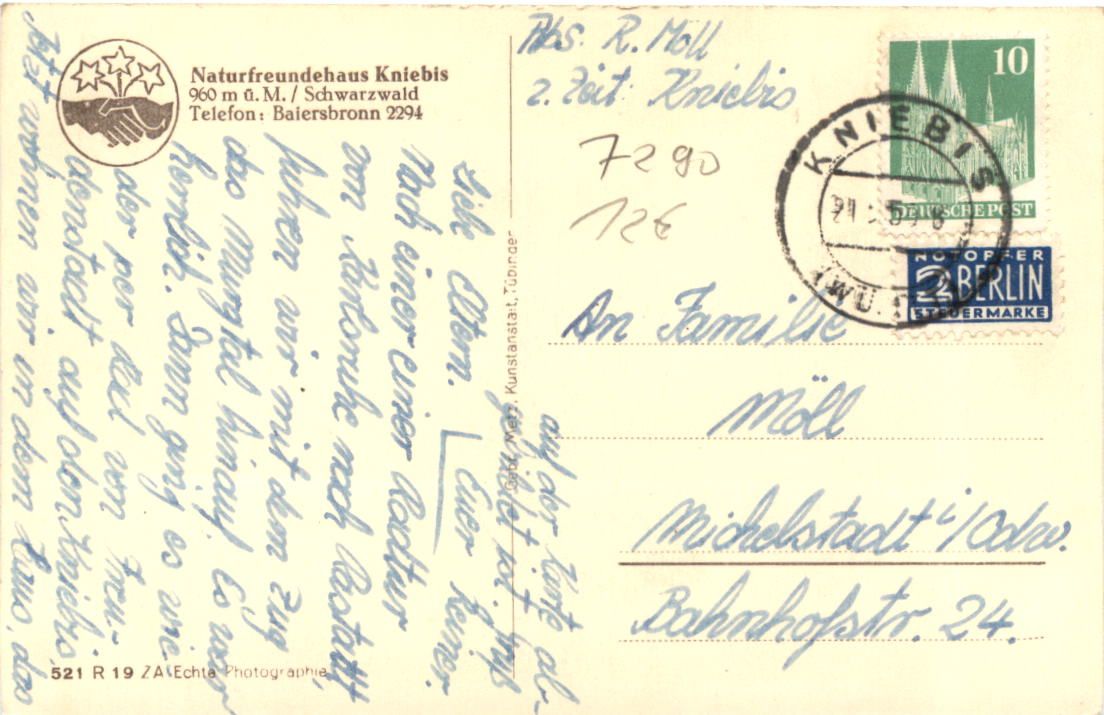 Naturfreundehaus Kniebis
960 m ü. M. / Schwarzwald
Telefon: Baiersbronn 2294
Lieb Eltern.
Nach einer einer Radtur
von Karlsruhe nach Rastatt
fuhren wir mit dem Zug
das Murgtal hinauf. Es war
herrlich. Dann ging es wie-
der per Rad von Freu-
denstadt auf den Kniebis
Jetzt wohnen wir in dem Haus, das
auf der Karte ab-
gebildet ist. Gruß
Euer Reiner.
521 R 19 ZA Echte Photographie
Gebr. Metz, Kunstanstalt, Tübingen
Abs. R. Moll
z. Zeit: Kniebis
7290
12€
10
DEUTSCHE POST
KNIEBIS
(WÜ.
NOTOPFER
2 BERLIN
STEUERMARKE
An Familie
Möll
Michelstadt i/Odw.
Bahnhofstr. 24.